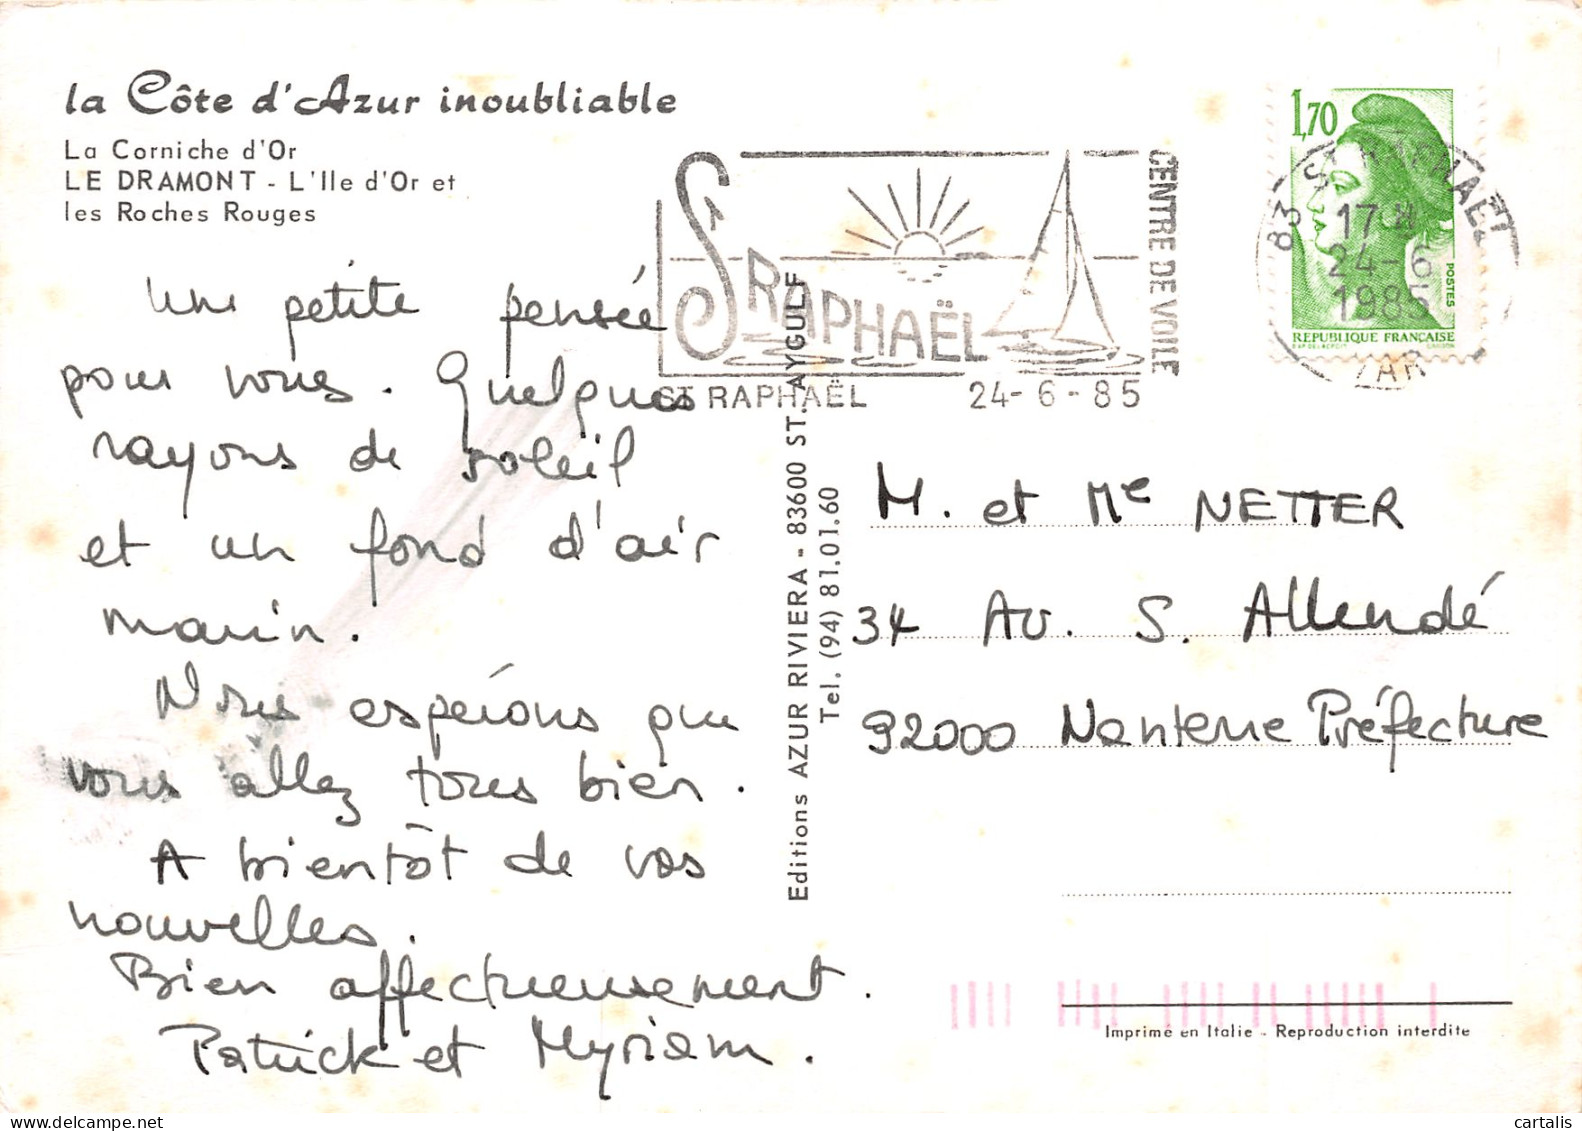 la Côte d'Azur inoubliable
La Corniche d'Or
LE DRAMONT - L'Ile d'Or et
les Roches Rouges
Une petite pensée
pour vous. Quelques
rayons de soleil
et un fond d'air
marin.
Nous espérons que
vous allez tous bien.
A bientôt de vos
nouvelles.
Bien affectueusement.
Patrick et Myriam.
ST RAPHAËL
CENTRE DE VOILE
ST RAPHAËL 24-6-85
1,70
POSTES
REPUBLIQUE FRANÇAISE
83 ST RAPHAEL
17 H
24-6
1985
VAR
Editions AZUR RIVIERA - 83600 ST. AYGULF
Tel. (94) 81.01.60
M. et Me NETTER
34 Av. S. Allendé
92000 Nanterre Préfecture
Imprimé en Italie - Reproduction interdite
cartalis